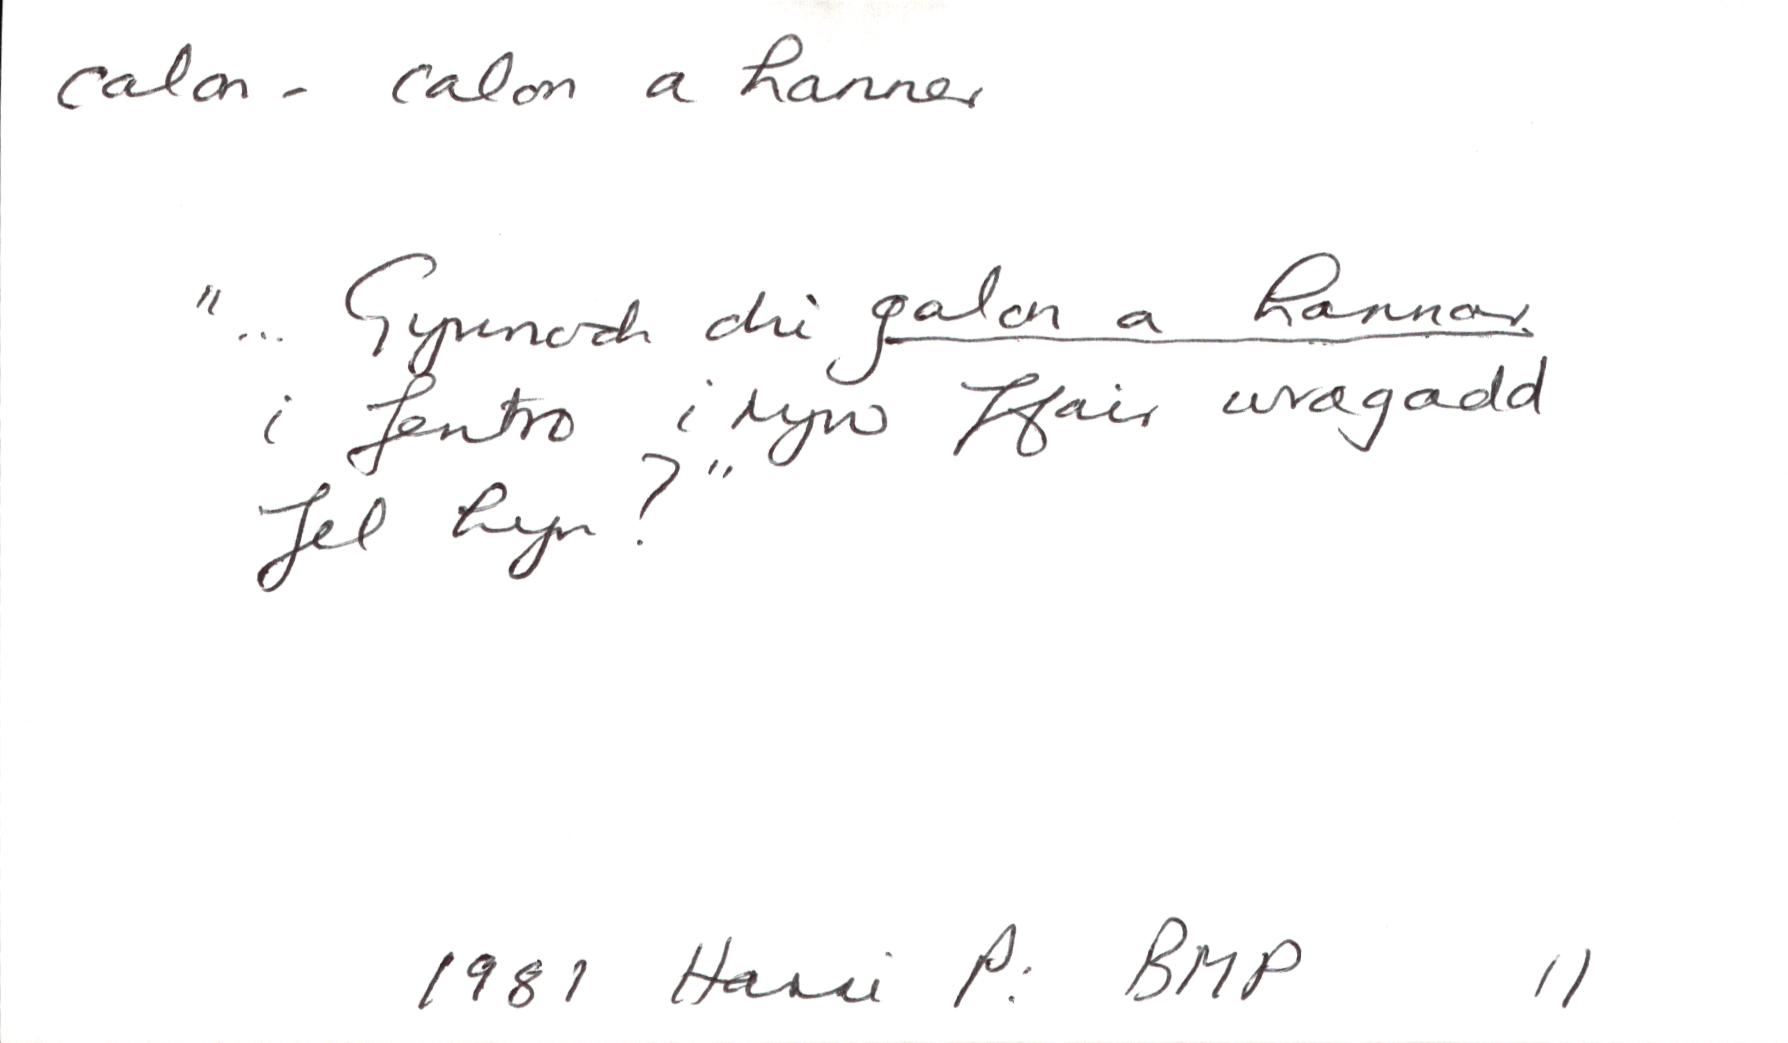 calon - calon a hanner
"... Gymnoch chi galon a hannar
i fentro i ryw ffair wragadd
fel hyn?"
1981 Harri P: BMP 11